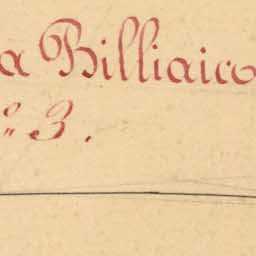 a Billiaico
o 3.